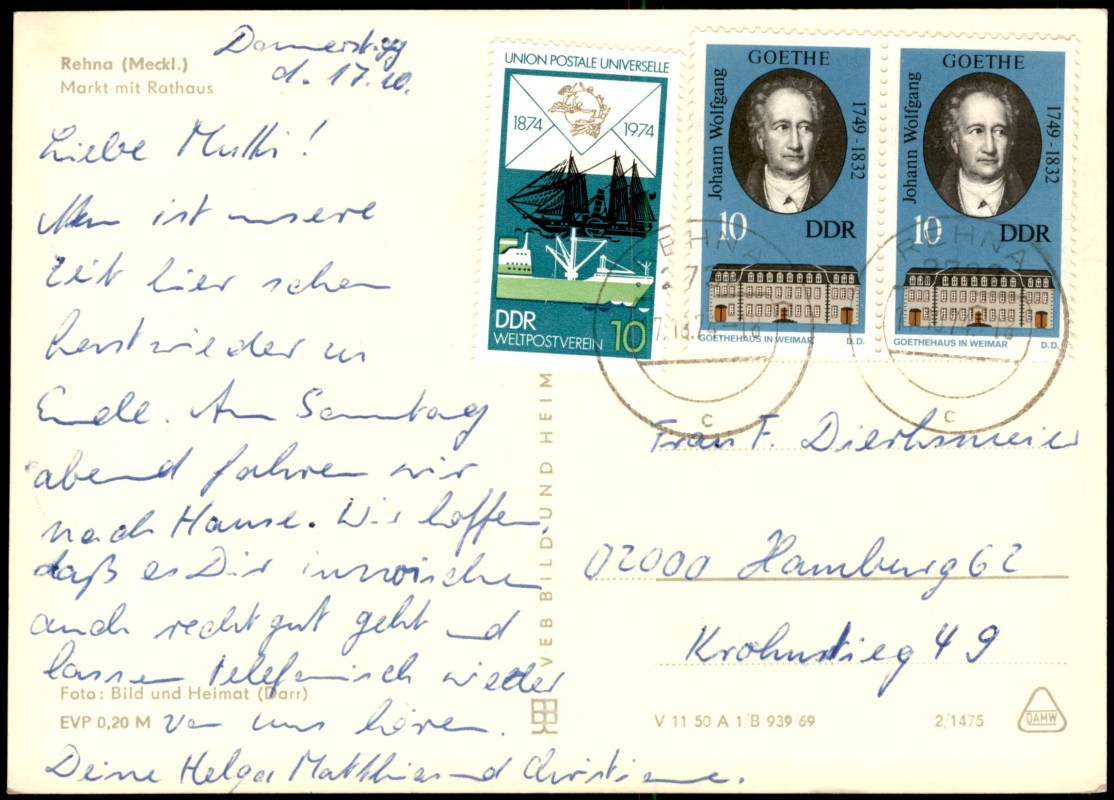 Rehna (Meckl.)
Markt mit Rathaus
Donnerstag
d. 17.10.
Liebe Mutti!
Nun ist unsere
Zeit hier schon
fast wieder zu
Ende. Am Sonntag
abend fahren wir
nach Hause. Wir hoffen,
daß es Dir inzwischen
auch recht gut geht und
lassen telefonisch wieder
von uns hören.
Deine Helga Matthias und Christiane.
Foto: Bild und Heimat (Darr)
EVP 0,20 M
VEB BILD UND HEIM
UNION POSTALE UNIVERSELLE
1874 1974
DDR
WELTPOSTVEREIN 10
GOETHE
Johann Wolfgang
1749 - 1832
10 DDR
GOETHEHAUS IN WEIMAR D.D.
GOETHE
Johann Wolfgang
1749 - 1832
10 DDR
GOETHEHAUS IN WEIMAR D.D.
REHNA
c
REHNA
c
Frau F. Dierksmeier
02000 Hamburg 62
Krohnstieg 49
V 11 50 A 1/B 939 69
2/1475
DAMW